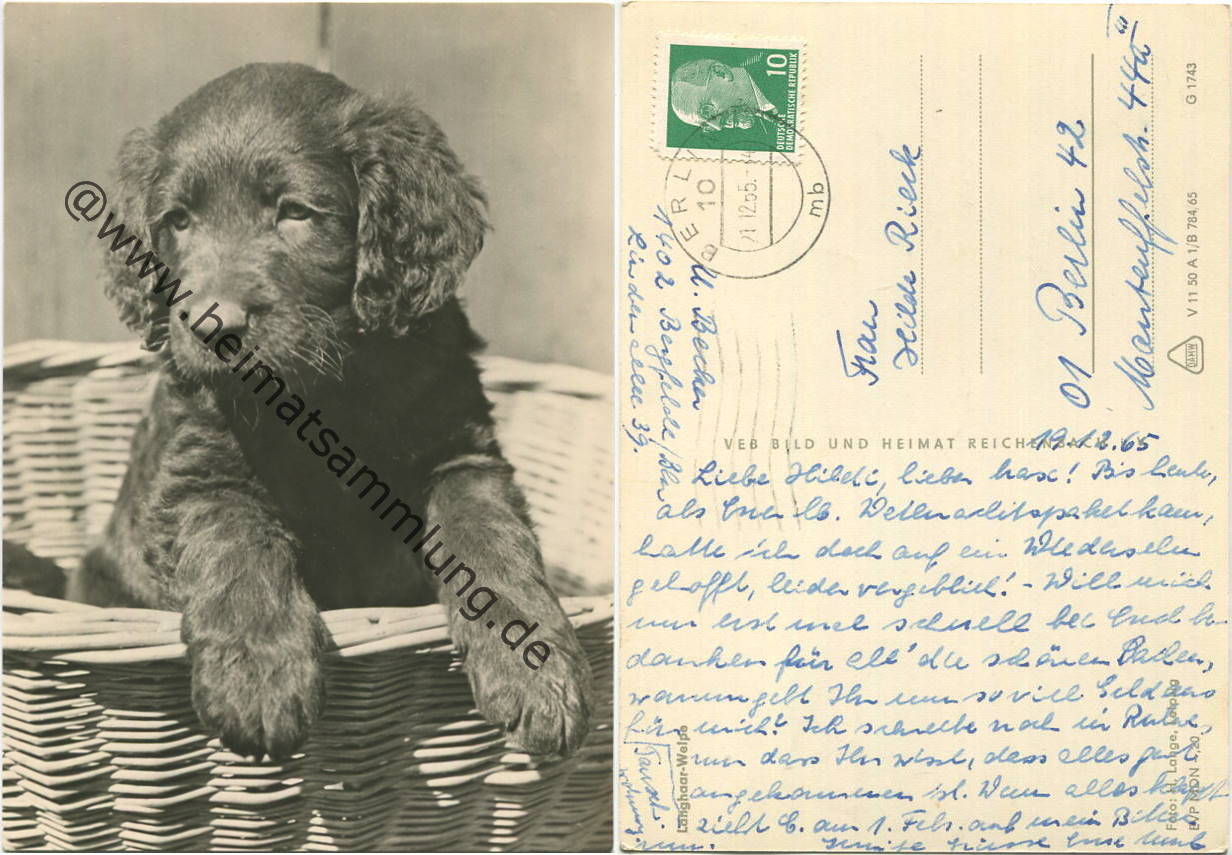 @www.heimatsammlung.de
10
DEUTSCHE
DEMOKRATISCHE REPUBLIK
BERLIN
10
21.12.65.-
mb
U. Becker
1402 Bergfelde/Bln
Lindenallee 39.
Frau
Hilde Rieck
01 Berlin 42
Manteuffelstr. 44a
G 1743
V 11 50 A 1/B 784/65
DAHW
VEB BILD UND HEIMAT REICHENBACH
19.12.65
Liebe Hildi, lieber Max! Bis heute,
als Euer lb. Weihnachtspaket kam,
hatte ich doch auf ein Wiedersehn
gehofft, leider vergeblich! - Will mich
nun erst mal schnell bei Euch be-
danken für all' die schönen Sachen,
warum gebt Ihr nun so viel Geld aus
für mich? Ich schreibe noch in Ruhe,
nur dass Ihr wisst, dass alles gut
angekommen ist. Wenn alles klappt
zieht C. am 1. Febr. auf mein Bitten
um. Grüsse Eure
Tausch-
wohnung
Langhaar-Welpe
Foto: H. Lange, Leipzig
EVP MDN 0,20